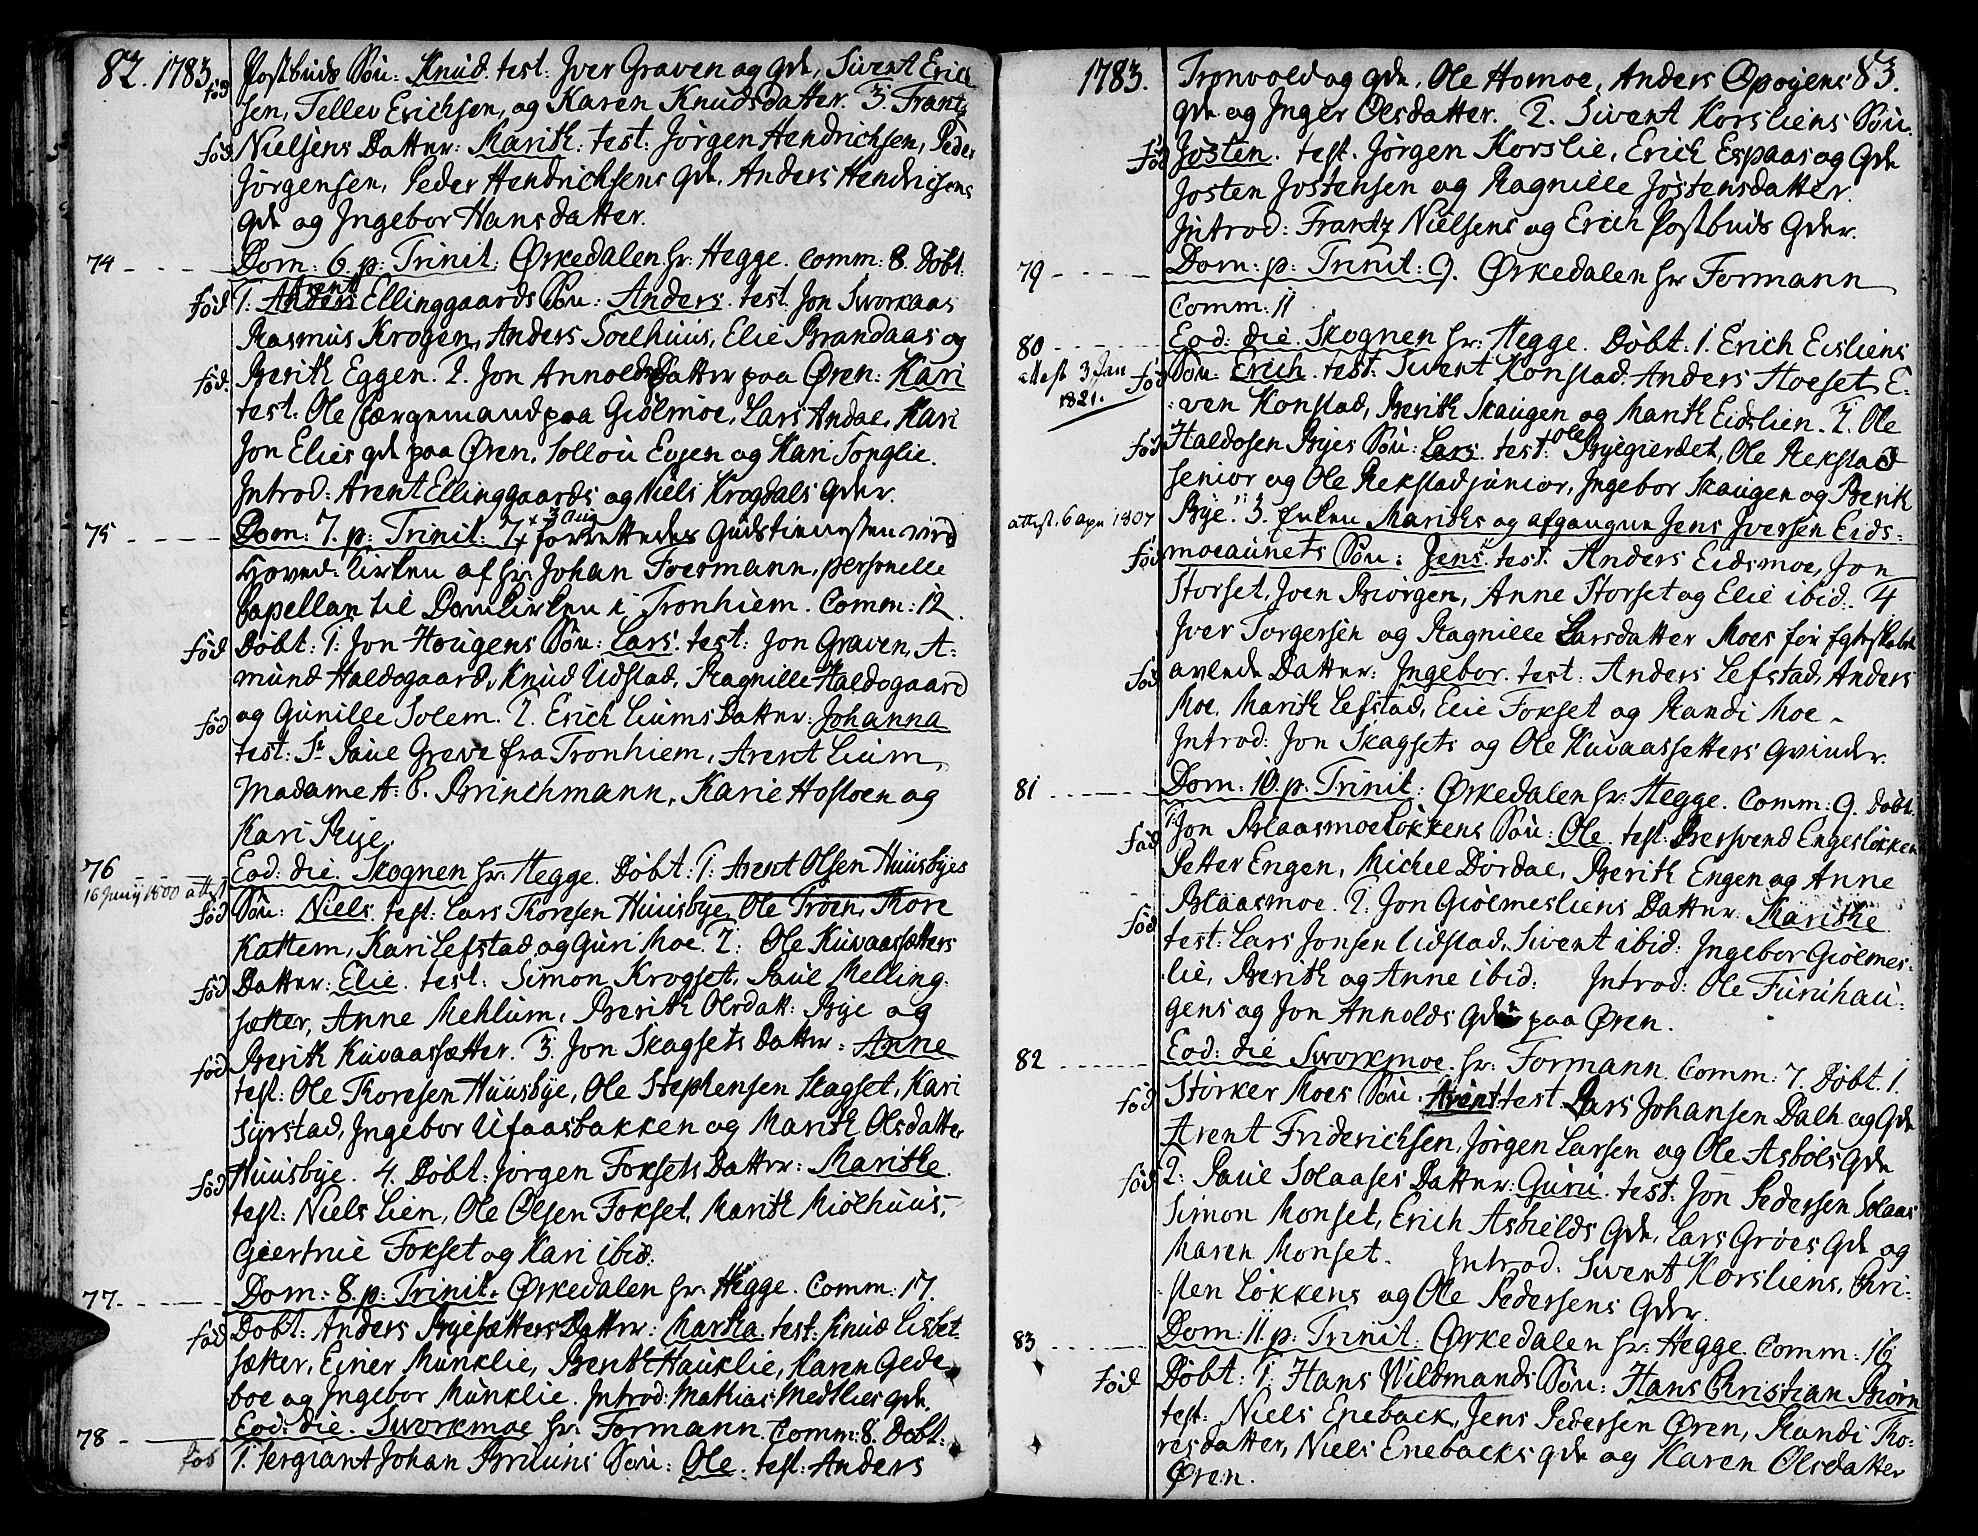 82. 1783.
fød Postbuds Søn: Knud. test: Jver Graven og gde, Sivert Erich
sen, Tellev Erichsen, og Karen Knudsdatter. 3. Frantz
fød Nielsens Datter: Marith: test: Jörgen Hendrichsen, Peder
Jörgensen, Peder Hendrichsens gde, Anders Hendrichsens
gde og Jngebor Hansdatter.
74 Dom: 6. p: Trinit: Ørkedalen hr: Hegge. Comm: 8. Døbt:
fød 1. Anders Arent Ellinggaards Søn: Anders. test. Jon Sworkaas
Rasmus Krogen, Anders Soelhuus, Elie Brandaas og
fød. Berith Eggen. 2. Jon Annolds Datter paa Øren: Kari
test: Ole færgemand paa Giölmoe, Lars Andal, Kari
Jon Elies gde paa Øren, Sollou Evjen og Kari Songlie.
Jntrod: Arent Ellinggaards og Niels Krogdals gder.
75 Dom: 7. p: Trinit: 7 + 3 Aug forrettedes Gudstienesten ved
Hoved-kirken af hr: Johan Foermann, personelle
Capellan til Domkirken i Tronhiem. Comm: 12.
fød Døbt: 1. Jon Hougens Søn: Lars. test: Jon Graven, A-
mund Haldogaard, Knud Udstad, Ragnille Haldogaard
fød og Gunille Solem. 2. Erich Liums Datter: Johanna
test: Sr Paul Greve fra Tronhiem, Arent Lium,
Madame A: C. Brinchmann, Karie Hosloen og
Kari Rije.
76 Eod: die. Skognen hr: Hegge. Døbt: 1. Arent Olsen Huusbyes
16 Junij 1800 attest fød Søn: Niels. test: Lars Toresen Huusbye, Ole Troen, Tore
Kattem, Kari Lefstad og Guri Moe. 2: Ole Kuvaassætters
fød Datter: Elie. test: Simon Krogset, Paul Melling-
sætter, Anne Mehlum, Berith Olsdatt: Bye og
fød Berith Kuvaassætter. 3. Jon Skagsets Datter: Anne
test: Ole Toresen Huusbye, Ole Stephensen Skagset, Kari
Syrstad, Jngebor Ufaasbakken og Marith Olsdatter
fød Huusbye. 4. Døbt: Jörgen Foksets Datter: Marithe.
test: Niels Lien, Ole Olsen Fokset, Marith Miölhuus,
Giertrue Fokset og Kari ibid:
77 Dom: 8. p: Trinit. Ørkedalen hr: Hegge. Comm: 17.
fød Døbt: Anders Byesætters Datter: Martha. test: Knud Lisbet-
sætter, Einer Munklie, Berith Hauklie, Karen Gede-
boe og Jngebor Munklie. Jntrod: Mathias Medtlies gde.
78 Eod: die. Sworkmoe hr: Formann. Comm: 8. Døbt:
fød 1. Sergiant Johan Bruuns Søn: Ole. test: Anders
1783. 83.
Tronvold og gde, Ole Homoe, Anders Opøyens
gde og Jnger Olsdatter. 2. Sivert Korsliens Søn.
fød Josten. test. Jörgen Korslie, Erich Espaas og gde
Josten Jostensen og Ragnille Jöstensdatter.
Jntrod: Frantz Nielsens og Erich Postbuds gder.
79 Dom: p: Trinit: 9. Ørkedalen hr Formann
Comm: 11
80 Eod: die. Skognen hr: Hegge. Døbt: 1. Erich Eisliens
attest 3 Jan 1821. fød Søn: Erich. test: Sivert Konstad. Anders Hoeset, E-
ven Konstad, Berith Skaugen og Marith Eidslien. 2. Ole
fød Haldosen Byes Søn: Lars. test: Ole Byegierdet, Ole Rekstad
senior og Ole Rekstad junior, Jngebor Skaugen og Berith
attest. 6 apr 1807 Bye. 3. Enken Mariths og afgangne Jens Jversen Eids-
fød moeaunets Søn: Jens. test: Anders Eidsmoe, Jon
Storset, Joen Biörgen, Anne Storset og Elie ibid. 4
Jver Torgersen og Ragnille Larsdatter Moes för Egteskabet
fød avlede Datter: Jngebor. test: Anders Lefstad, Anders
Moe, Marith Lefstad, Elie Fokset og Randi Moe.
Jntrod: Jon Skagsets og Ole Kuvaassetters Qvinder.
81 Dom: 10. p: Trinit: Ørkedalen hr: Hegge. Comm: 9. Døbt:
fød 1. Jon Blaasmoeløkkens Søn: Ole. test: Bersvend Engesløkken
Petter Engen, Michel Dørdal, Berith Engen og Anne
fød Blaasmoe. 2. Jon Giölmesliens Datter: Marithe
test: Lars Jonsen Udstad, Sivert ibid: Jngebor Giölmes-
lie, Berith og Anne ibid: Jntrod: Ole Furuhau-
gens og Jon Annolds gder paa Øren.
82 Eod: die Sworkmoe. hr: Formann. Comm: 7. Døbt. 1.
fød Størker Moes Søn: Arent test. Lars Johansen Dalh og gde
Arent Friderichsen, Jörgen Larsen og Ole Asbøls gde
fød 2. Paul Solaases Datter: Guru. test: Jon Pedersen Solaas
Simon Monset, Erich Asbiølds gde, Lars Grøes gde og
Maren Monset. Jntrod: Sivert Korsliens, Chri-
sten Løkkens og Ole Pedersens gder.
83 Dom: 11. p: Trinit: Ørkedalen hr: Hegge. Comm: 16
fød Døbt: 1. Hans Wildmands Søn: Hans Christian Biörn
test: Niels Eneback, Jens Pedersen Øren, Randi To-
resdatter, Niels Enebacks gde og Karen Olsdatter
Øren.